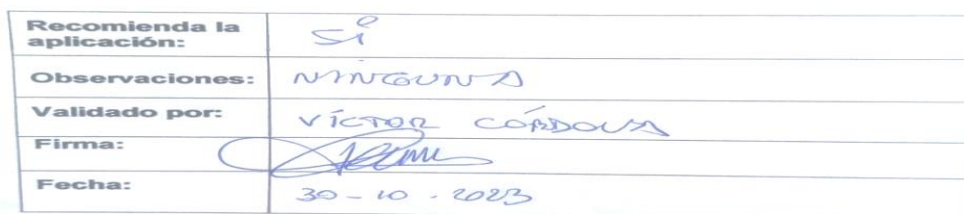 Recomienda la
aplicación: Sí
Observaciones: NINGUNA
Validado por: VÍCTOR CÓRDOVA
Firma:
Fecha: 30-10-2023